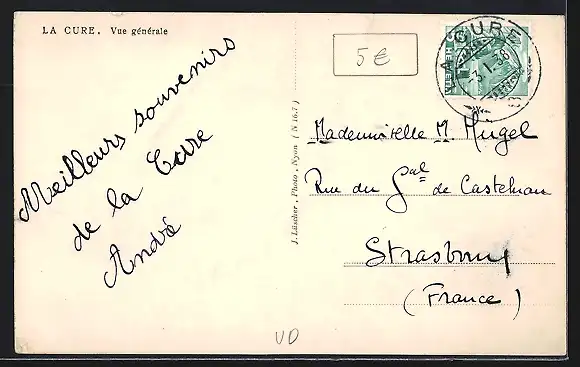 LA CURE. Vue générale
5 €
LA CURE
3.1.38
HELVETIA
Meilleurs souvenirs
de la Cure
André
J. Lüscher, Photo, Nyon (N 16.7)
Mademoiselle M. Mugel
Rue du Gal de Castelnau
Strasbourg
(France)
VD